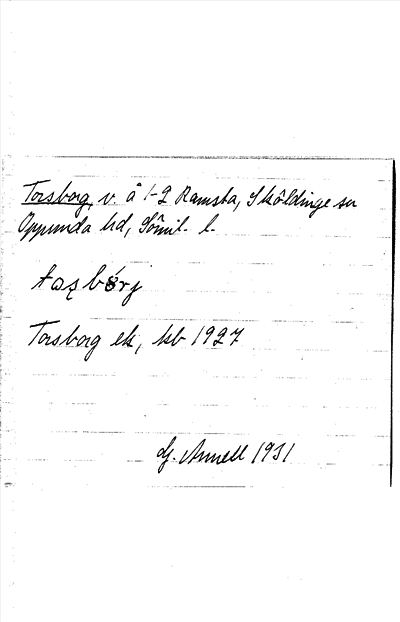 Torsborg, v. å 1-2 Ramsta, Sköldinge sn
Oppunda hd, Sörml. l.
Torsborg ek, kb 1927
G. Annell 1931